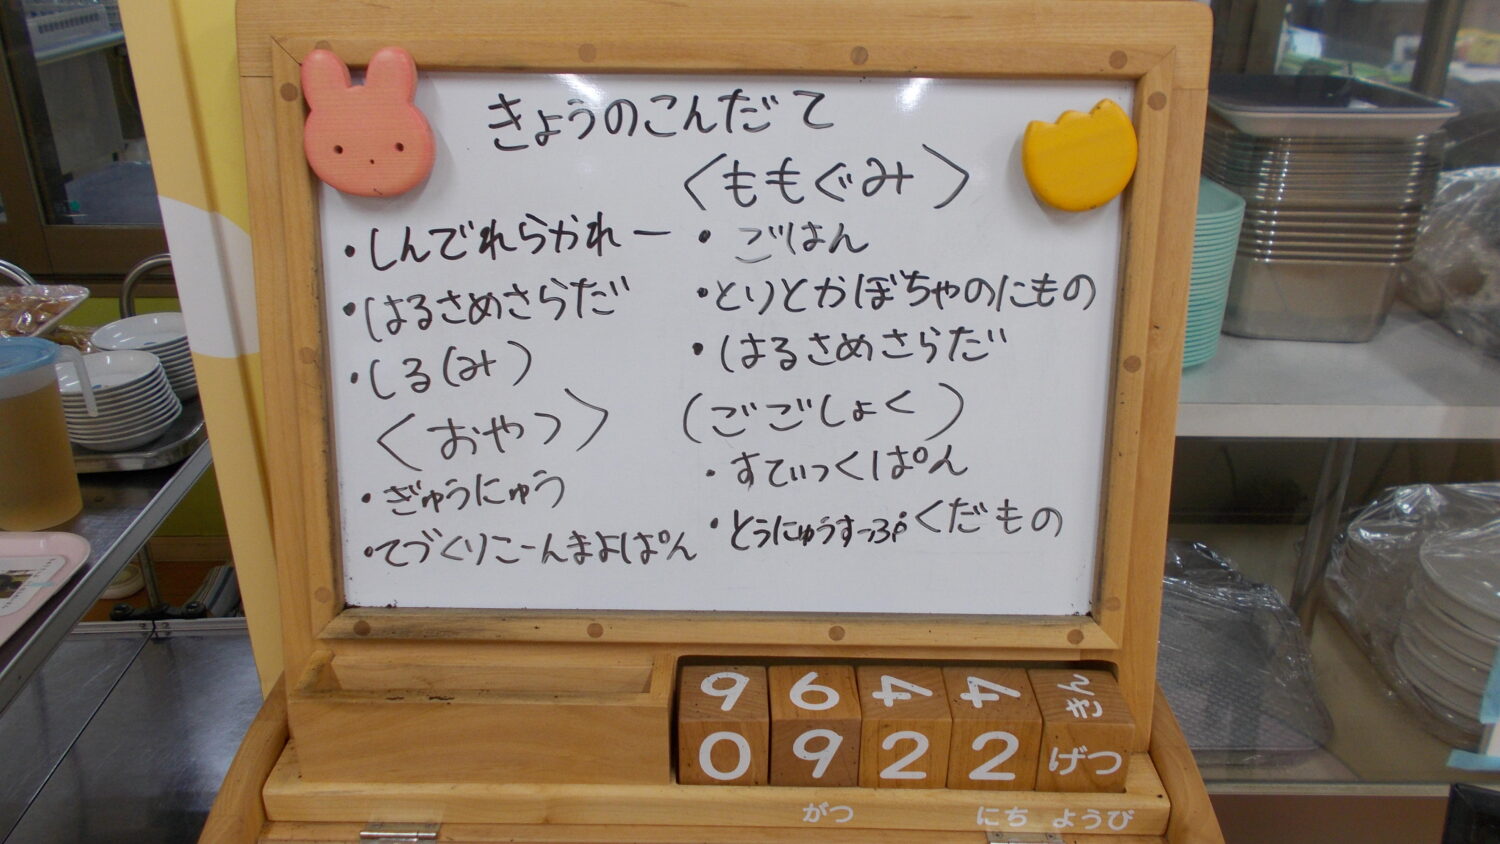 きょうのこんだて
・しんでれらかれー
・はるさめさらだ
・しる(み)
〈おやつ〉
・ぎゅうにゅう
・てづくりこーんまよぱん
〈ももぐみ〉
・ごはん
・とりとかぼちゃのにもの
・はるさめさらだ
(ごごしょく)
・すてぃっくぱん
・とうにゅうすーぷ くだもの
9 6 4 4 きん
0 9 2 2 げつ
がつ にち ようび